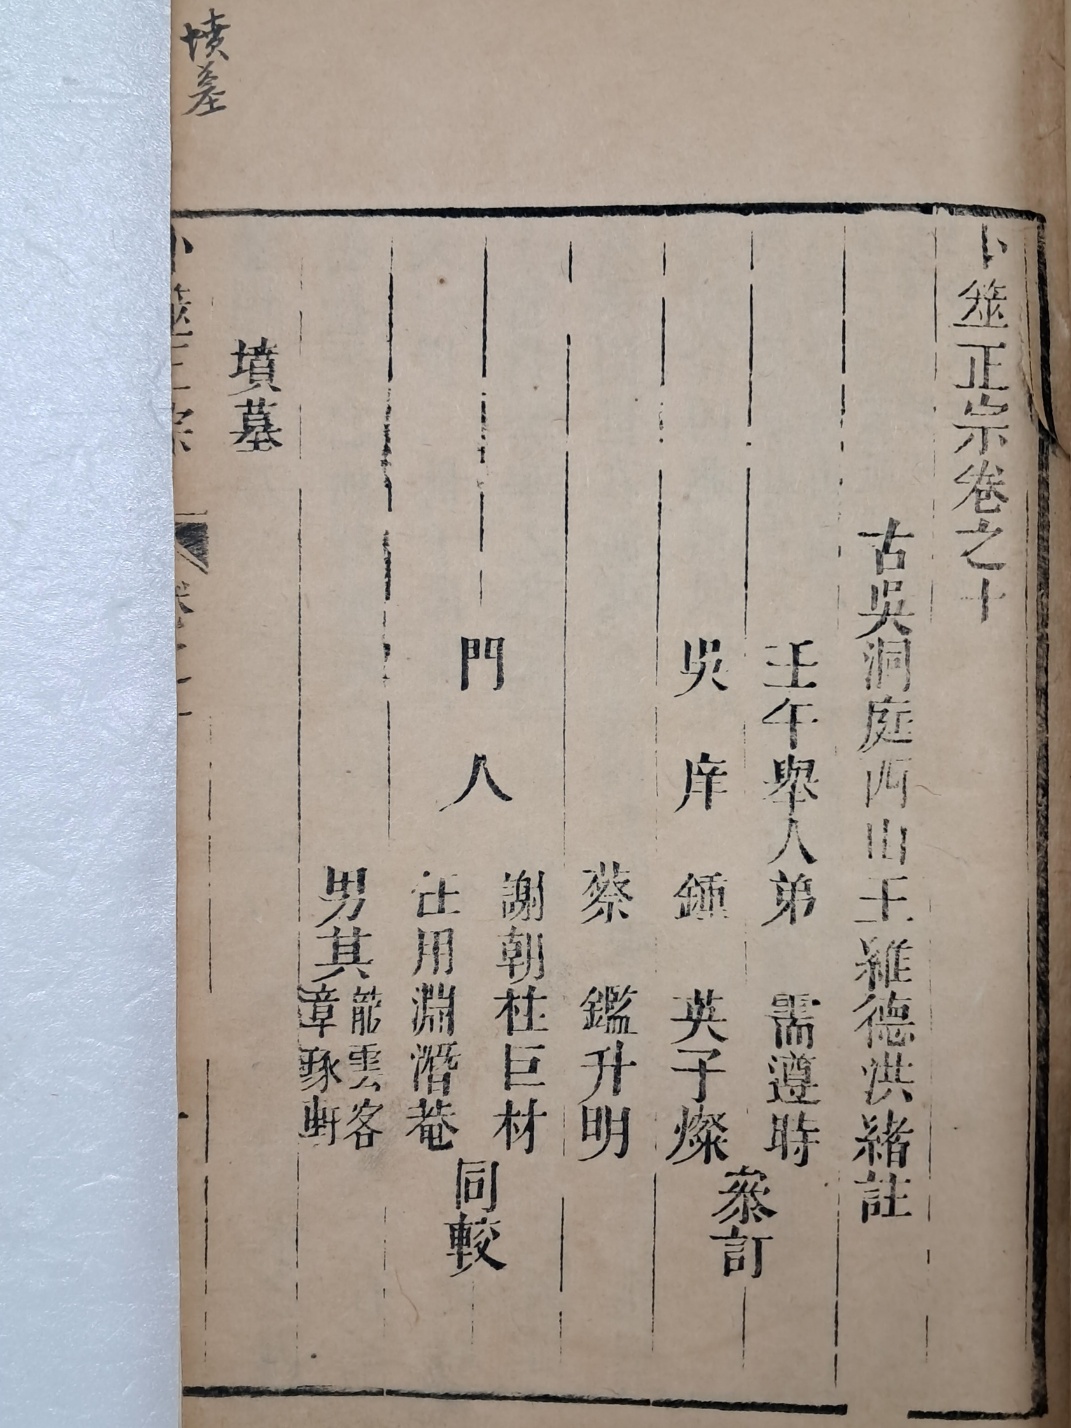 卜筮正宗卷之十
古吳洞庭西山王維德洪緒註
壬午舉人弟　需遵時
吳　庠　鍾　英子燦
叅訂
蔡　鑑升明
門　人
謝朝柱巨材
任用淵潛菴
同較
男其
龍雲客
章琢軒
墳墓
卜筮正宗
卷之十
墳墓